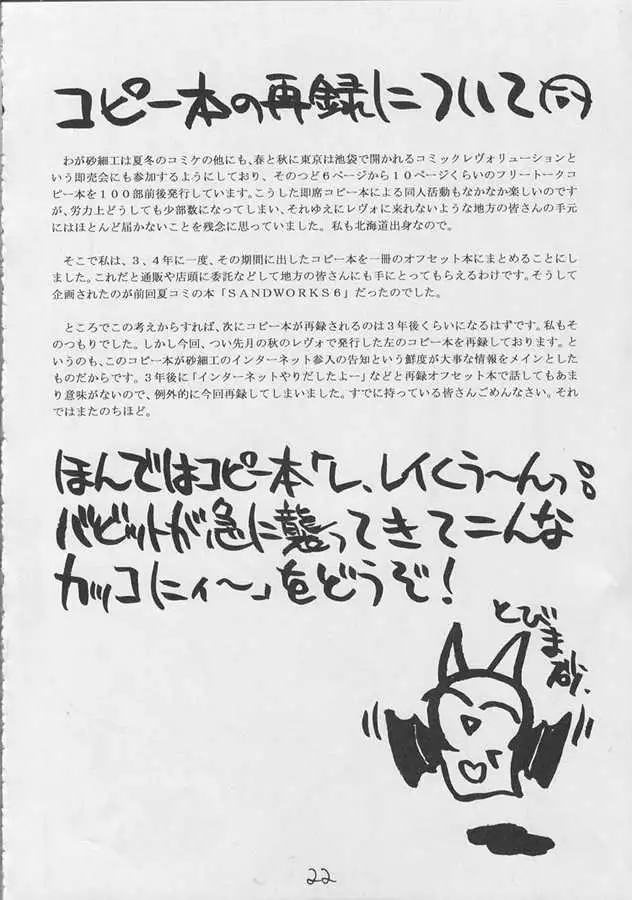 コピー本の再録について
わが砂細工は夏冬のコミケの他にも、春と秋に東京は池袋で開かれるコミックレヴォリューションと
いう即売会にも参加するようにしており、そのつど６ページから１０ページくらいのフリートーク
コピー本を１００部前後発行しています。こうした即席コピー本による同人活動もなかなか楽しいのです
が、労力上どうしても少部数になってしまい、それゆえにレヴォに来れないような地方の皆さんの手元
にはほとんど届かないことを残念に思っていました。私も北海道出身なので。
そこで私は、３、４年に一度、その期間に出したコピー本を一冊のオフセット本にまとめることにし
ました。これだと通販や店頭に委託などして地方の皆さんにも手にとってもらえるわけです。そうして
企画されたのが前回夏コミの本「ＳＡＮＤＷＯＲＫＳ６」だったのでした。
ところでこの考えからすれば、次にコピー本が再録されるのは３年後くらいになるはずです。私もそ
のつもりでした。しかし今回、つい先月の秋のレヴォで発行した左のコピー本を再録しております。と
いうのも、このコピー本が砂細工のインターネット参入の告知という鮮度が大事な情報をメインとした
ものだからです。３年後に「インターネットやりだしたよー」などと再録オフセット本で話してもあま
り意味がないので、例外的に今回再録してしまいました。すでに持っている皆さんごめんなさい。それ
ではまたのちほど。
ほんではコピー本「レ、レイくう〜んっ!!
バビットが急に襲ってきてこんな
カッコにィ〜」をどうぞ！
とびま砂、
22